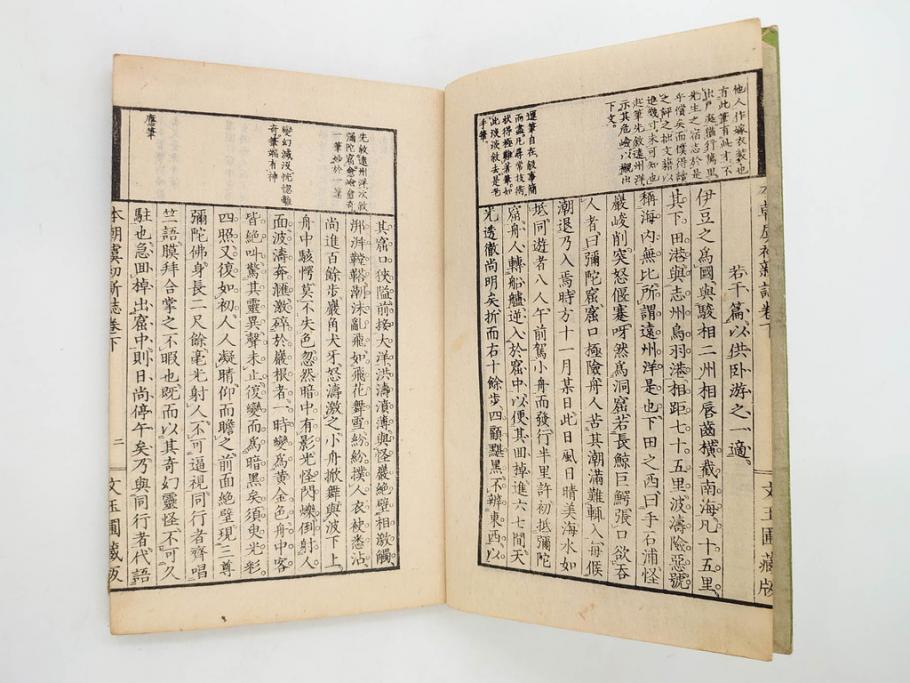 本朝虞初新誌卷下
文玉圃藏版
他人作嫁衣裳也
有此筆有此才不
出戶庭猶行萬里
先生之宿志於是
乎償矣而僕得讀
之解之拙文藉以
進幾寸未可知也
起筆先敘遠州洋
示其危嶮以襯出
下文。
運筆自在敍事簡
而盡凡尋常技術
狀得極難著筆如
此淡淡敘去是老
手筆。
若干篇以供卧游之一適。
伊豆之爲國與駿相二州相唇齒橫截南海凡十五里。
其下田港與志州鳥羽港相距七十五里波濤險惡號
稱海內無比所謂遠州洋是也下田之西曰手石浦怪
巖峻削突怒偃蹇呀然爲洞窟若長鯨巨鰐張口欲吞
人者曰彌陀窟窟口極險舟人苦其潮滿難輙入每候
潮退乃入焉時方十一月某日此日風日晴美海水如
坻同遊者八人午前駕小舟而發行半里許初抵彌陀
窟舟人轉船艫逆入於窟中以便其回掉進六七間天
光透徹尚明矣折而右十餘步四顧黮黑不辨東西以
先敘遠州洋次敘
彌陀窟愈嶮愈奇
一筆妙於一筆
變幻滅沒恍惚離
奇筆端有神
應筆
其窟口狹隘前接大洋洪濤濆薄與怪巖絶壁相激觸。
澎湃鞺鞳潮沫亂飛如飛花舞雪紛紛撲人衣袂悉沾。
尚進百餘步巖角犬牙怒濤激之小舟掀舞與波下上。
舟中駭愕莫不失色忽然暗中有影光怪閃爍倒射人
面波濤奔滙激碎於巖根者一時變爲黃金色舟中客
皆絕叫驚其靈異聲未止復變而爲暗黑矣須臾光彩
四照又復如初人人凝睛仰而瞻之前面絶壁現三尊
彌陀佛身長二尺餘毫光射人不可逼視同行者齊唱
竺語膜拜合掌之不暇也既而以其奇幻靈怪不可久
駐也急回掉出窟中則日尚停午矣乃與同行者代語
本朝虞初新誌卷下
二
文玉圃藏版